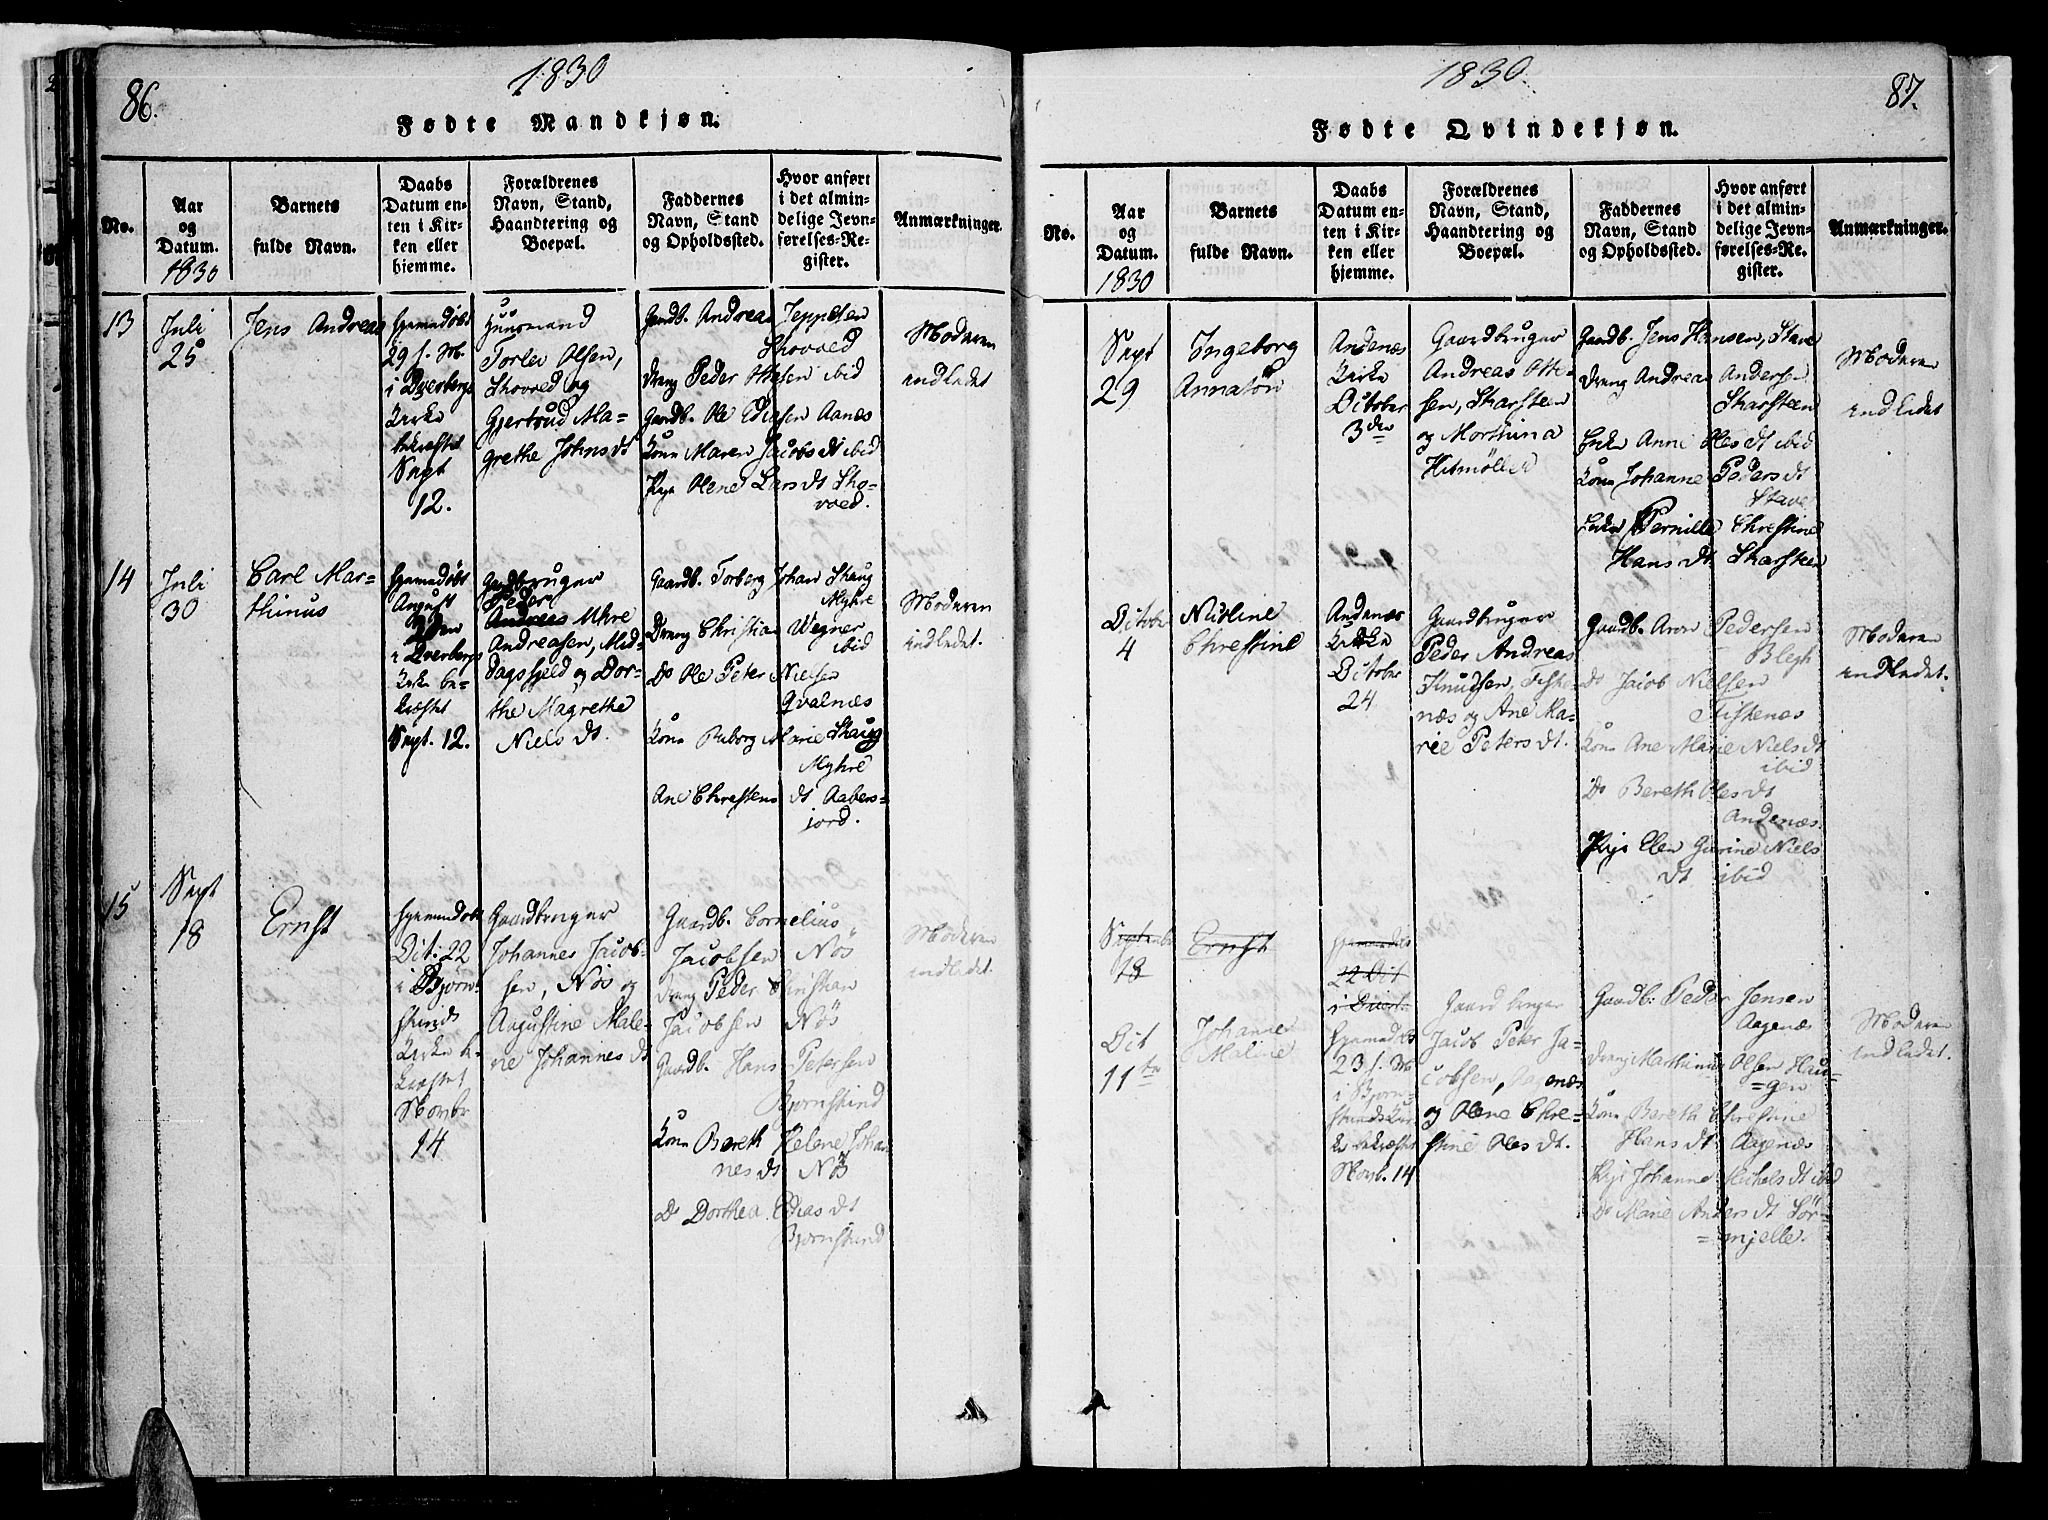 86.
1830
Fødte Mandkjøn.
No.
Aar
og
Datum.
1830
Barnets
fulde Navn.
Daabs
Datum en-
ten i Kir-
ken eller
hjemme.
Forældrenes
Navn, Stand,
Haandtering og
Boepæl.
Faddernes
Navn, Stand
og Opholdssted.
Hvor anført
i det almin-
delige Jevn-
førelses-Re-
gister.
Anmærkninger.
13
Juli
25
Jens Andreas
Hjemmedøbt
29 s. M.
i Dverbergs
Kirke
bekræftet
Sept
12.
Huusmand
Torlev Olsen,
Skovoed og
Gjertrud Ma-
grethe Johnsdt
Gaardb. Andreas Jeppesen
Skovoed
Dreng Peder Ottesen ibid
Gaardb. Ole Ediasen Aanæs
Kone Maren Jacobsdt ibid
Pige Olene Larsdt Sko-
voed.
Moderen
indledet
14
Juli
30
Carl Mar-
thinus
Hjemmedøbt
August
i Dverbergs
Kirke be-
kræftet
Sept. 12.
Gaardbruger
Peder
Andreas Myhre
Andreasen, Mid-
dagsfjeld og Dor-
the Magrethe
Niels dt.
Gaardb. Torberg Johan Skaug
Myhre
Dreng Christian Wegner
ibid
Do Ole Peter Nielsen
Qvalnæs
Kone Marie Skaug
Myhre
Ane Chrestens dt Aabers-
jord.
Moderen
indledet.
15
Sept
18
Ernst
Hjemmedøbt
Oct. 22
i Bjørn-
skinds
Kirke be-
kræftet
Novbr
14
Gaardbruger
Johannes Jacob-
sen, Nös og
Augustine Male-
ne Johannes dt
Gaardb. Cornelius
Jacobsen Nös
Dreng Peder Christian
Jacobsen Nös
Gaardb. Hans Petersen
Bjørnskind
Kone Bereth Helene Johan
nes dt Nös
Do Dorthea Edias dt
Bjørnskind
Moderen
indledet.
1830.
87.
Fødte Qvindekjøn.
No.
Aar
og
Datum.
1830
Barnets
fulde Navn.
Daabs
Datum en-
ten i Kir-
ken eller
hjemme.
Forældrenes
Navn, Stand,
Haandtering og
Boepæl.
Faddernes
Navn, Stand
og Opholdssted.
Hvor anført
i det almin-
delige Jevn-
førelses-Re-
gister.
Anmærkninger.
Sept
29
Ingeborg
Annatön
Andenæs
Kirke
October
3die
Gaardbruger
Andreas Otte-
sen, Skarsteen
og Morthina
Hetmöller
Gaardb. Jens Hansen, Stave
Dreng Andreas Andersen
Skarsteen
Enke Anne Olesdt ibid
Kone Johanne Peders dt
Stave
Enke Pernille Chrestine
Hans dt. Skarsteen
Moderen
indledet
October
4
Nicoline
Chrestine
Andenæs
Kirke
October
24
Gaardbruger
Peder Andreas
Knudsen, Fiske-
næs og Ane Ma-
rie Peters dt.
Gaardb. Aron Pedersen
Blegh
Do Jacob Nielsen
Fiskenæs
Kone Ane Marie Niels dt
ibid
Do Bereth Olesdt
Andenæs.
Pige Elen Gurine Niels
dt ibid
Moderen
indledet.
Septembr
18
Ernst
Hjemmedøbt
22 Oct
i Dverb
Oct
11te
Johanne
Maline
Hjemmedøbt
23 s. M
i Bjørn-
skinds Kir
ke bekræftet
Novb. 14
Gaardbruger
Jacob Peter Ja-
cobsen, Aagenæs
og Olene Chre-
stine Oles dt.
Gaardb. Peder Jensen
Aagenæs
Dreng Marthinus Olsen Hau-
gen
Kone Bereth Chrestine
Hans dt Aagenæs
Pige Johanne Michels dt ibid
Do Marie Anders dt Sör-
mjelle.
Moderen
indledet.